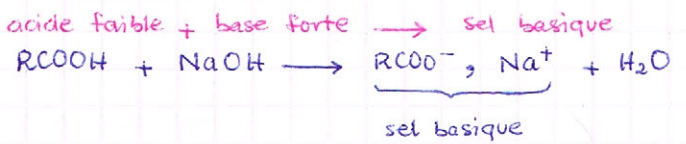 acide faible + base forte → sel basique
RCOOH + NaOH → RCOO⁻, Na⁺ + H₂O
sel basique